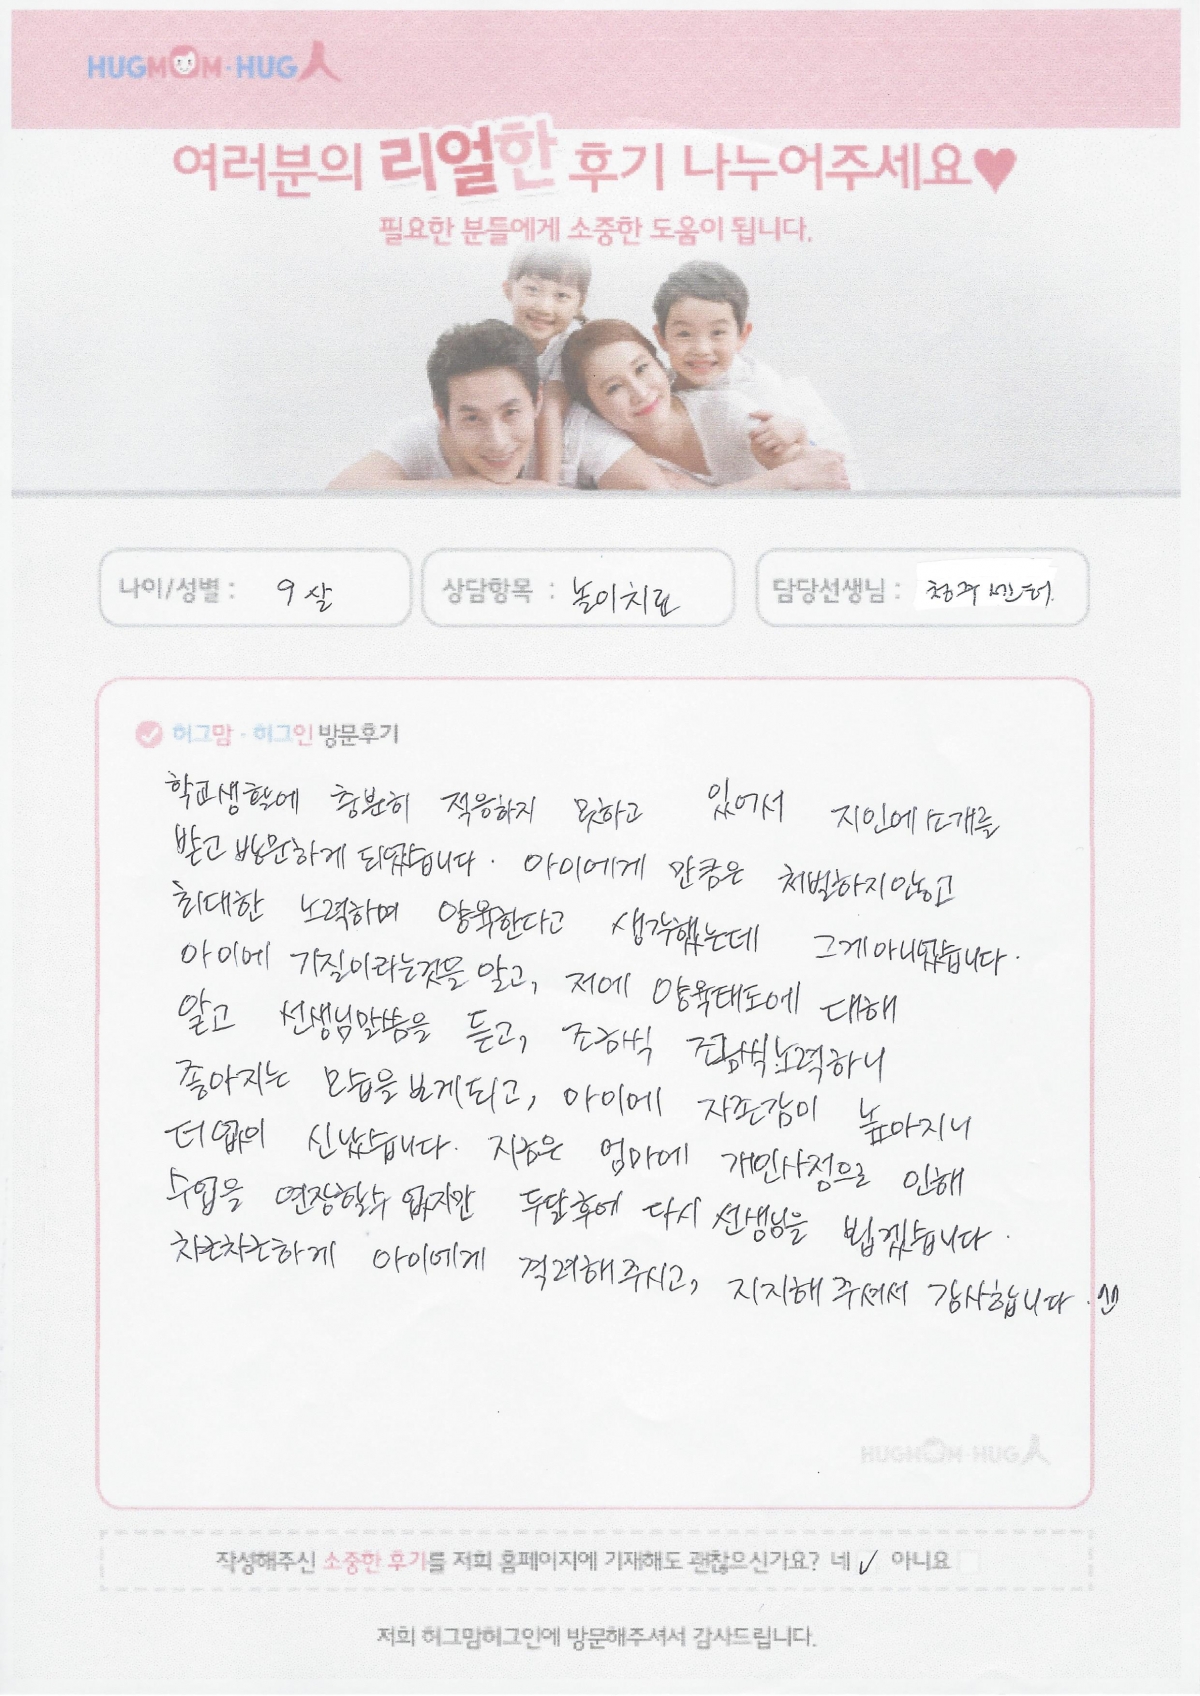 HUGMOM·HUG人
여러분의 리얼한 후기 나누어주세요♥
필요한 분들에게 소중한 도움이 됩니다.
나이/성별 : 9살
상담항목 : 놀이치료
담당선생님 : 청주센터.
허그맘·허그인 방문후기
학교생활에 충분히 적응하지 못하고 있어서 지인에 소개를
받고 방문하게 되었습니다. 아이에게 만큼은 처벌하지안놓고
최대한 노력하며 양육한다고 생각했는데 그게아니였습니다.
아이에 기질이라는것을 알고, 저에 양육태도에 대해
알고 선생님말씀을 듣고, 조금씩 조금씩노력하니
좋아지는 모습을보게되고, 아이에 자존감이 높아지니
더없이 신났습니다. 지금은 엄마에 개인사정으로 인해
수업을 연장할수 없지만 두달후에 다시 선생님을 뵙겠습니다.
차근차근하게 아이에게 격려해주시고, 지지해주셔서 감사합니다.^^
HUGMOM·HUG人
작성해주신 소중한 후기를 저희 홈페이지에 기재해도 괜찮으신가요? 네 ✓ 아니요
저희 허그맘허그인에 방문해주셔서 감사드립니다.